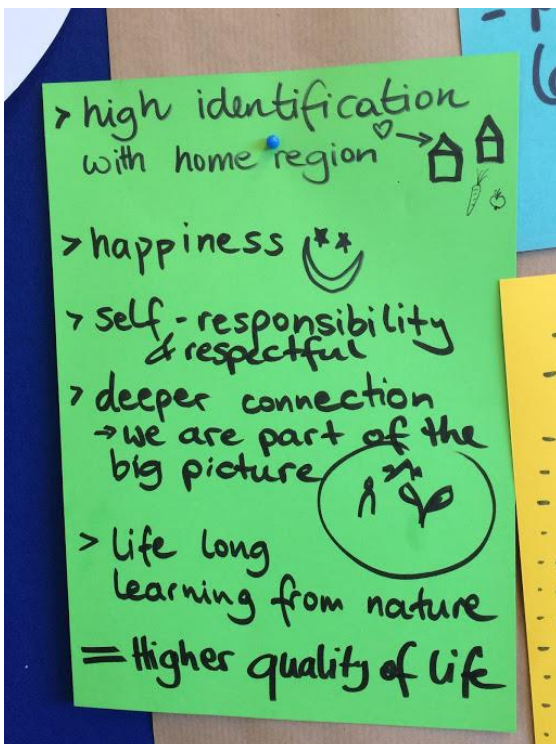 > high identification
with home region
> happiness
> self-responsibility
& respectful
> deeper connection
→ we are part of the
big picture
> life long
learning from nature
= Higher quality of life